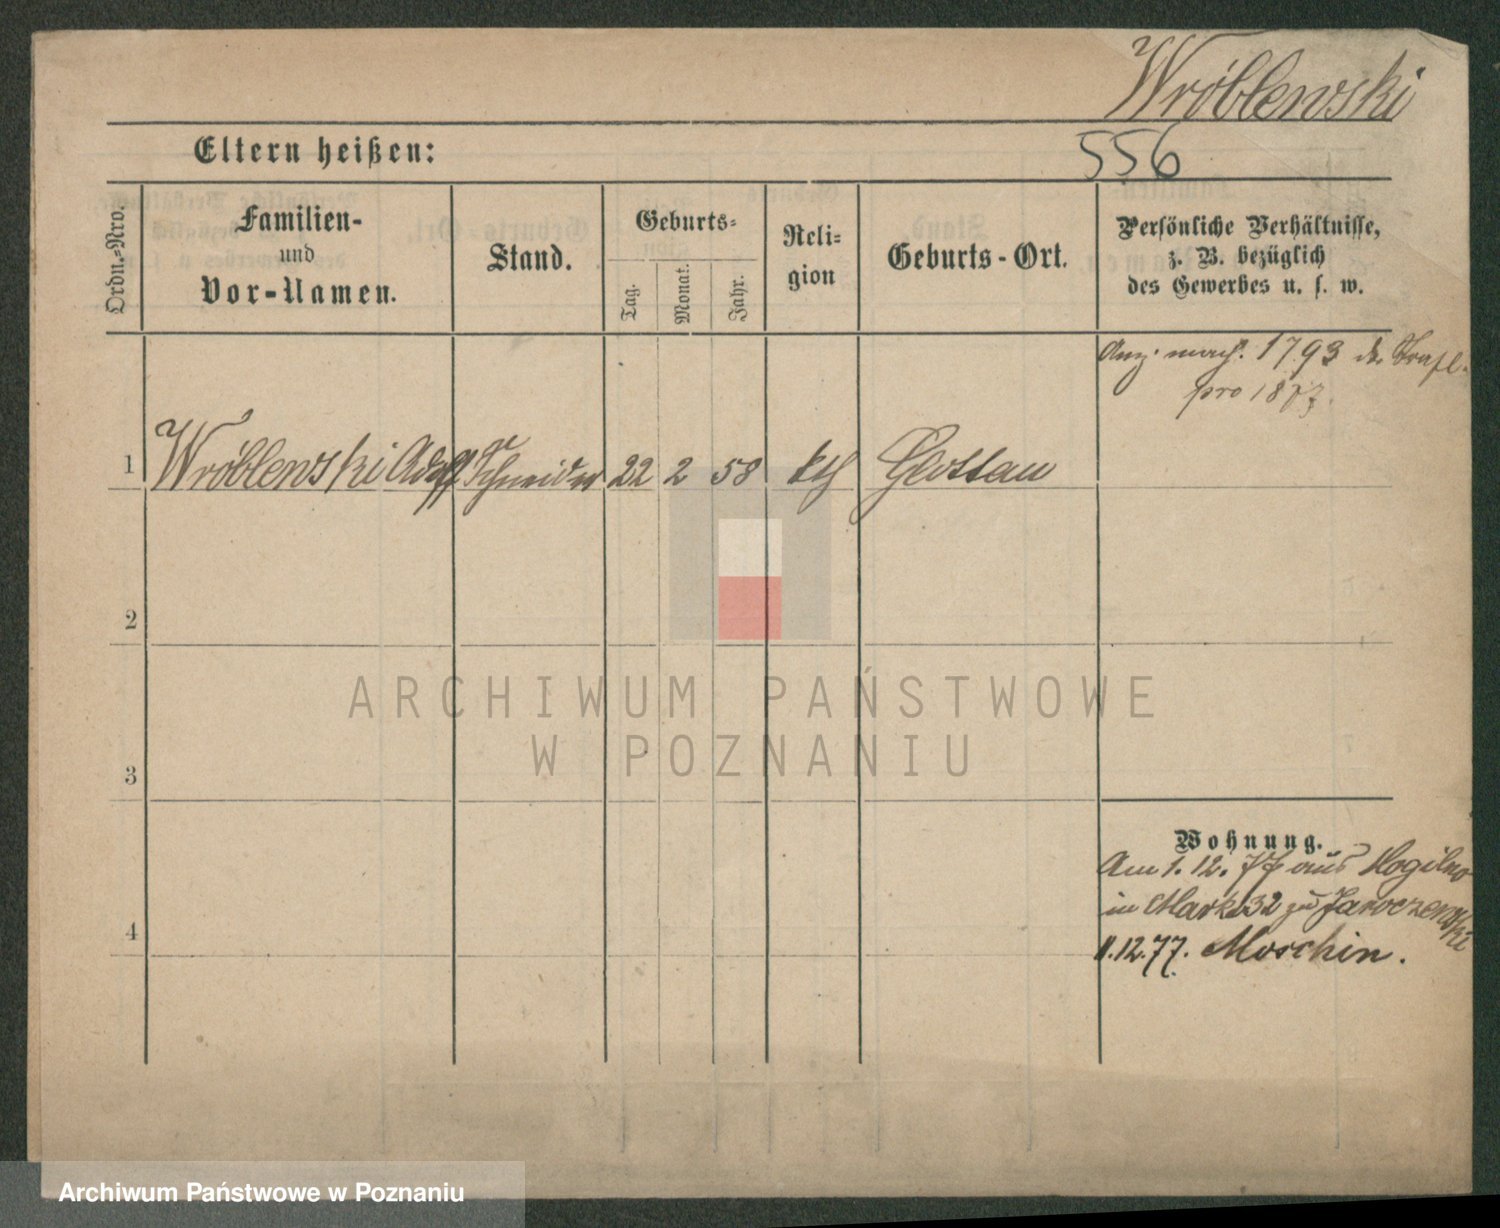 Wróblewski
Eltern heißen:
556
Ordn.-Nro.
Familien-
und
Vor-Namen.
Stand.
Geburts-
Tag.
Monat.
Jahr.
Reli-
gion
Geburts-Ort.
Persönliche Verhältnisse,
z. B. bezüglich
des Gewerbes u. s. w.
1793
pro 1877.
1 Wróblewski Adolf Schneider 22 2 58 kth Glottau
2
3
4
Wohnung.
Am 1. 12. 77 aus Mogilno
in Markt 32 zu Jaroczewski
11.12.77. Moschin.
ARCHIWUM PAŃSTWOWE
W POZNANIU
Archiwum Państwowe w Poznaniu